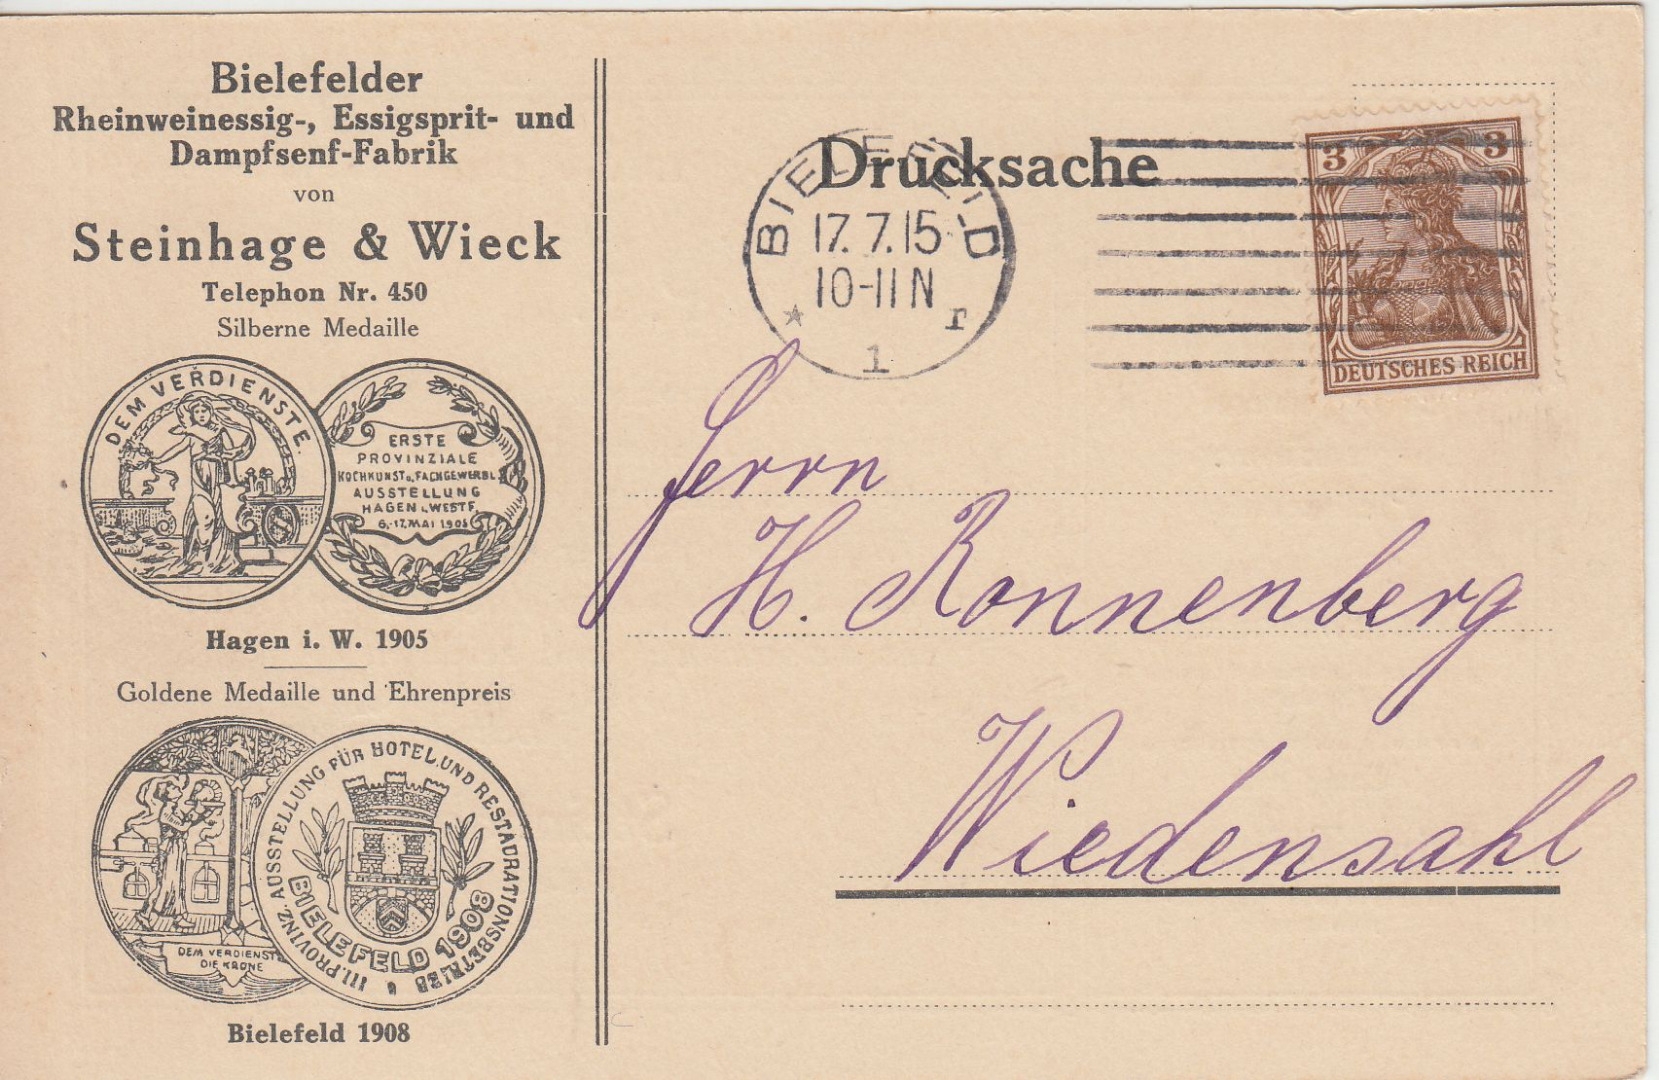 Bielefelder
Rheinweinessig-, Essigsprit- und
Dampfsenf-Fabrik
von
Steinhage & Wieck
Telephon Nr. 450
Silberne Medaille
DEM VERDIENSTE.
ERSTE
PROVINZIALE
KOCHKUNST u. FACHGEWERBL.
AUSSTELLUNG
HAGEN i. WESTF.
6.-17. MAI 1905
Hagen i. W. 1905
Goldene Medaille und Ehrenpreis
DEM VERDIENSTE
DIE KRONE
III. PROVINZ. AUSSTELLUNG FÜR HOTEL. UND RESTAURATIONSBETRIEB
BIELEFELD 1908
Bielefeld 1908
Drucksache
BIELEFELD
17. 7. 15
10-11 N
* 1 r
3 3
DEUTSCHES REICH
Herrn
H. Ronnenberg
Wiedensahl